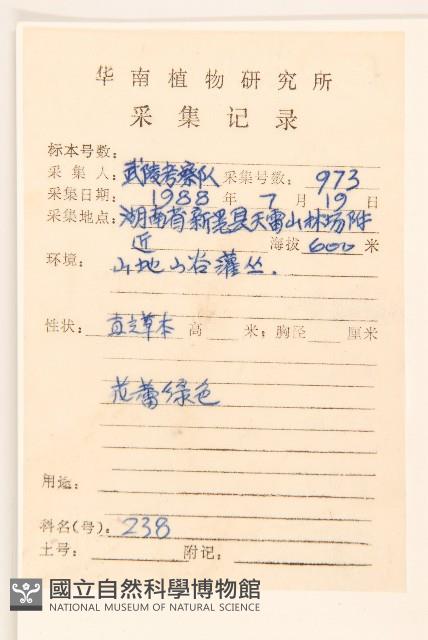 华南植物研究所
采集记录
标本号数:
采集人: 武陵考察队 采集号数: 973
采集日期: 1988 年 7 月 19 日
采集地点: 湖南省新晃县天雷山林场附
近 海拔 600 米
环境: 山地山谷灌丛.
性状: 直立草本 高 米; 胸径 厘米
花蕾绿色
用途:
科名(号): 238
土号: 附记:
國立自然科學博物館
NATIONAL MUSEUM OF NATURAL SCIENCE